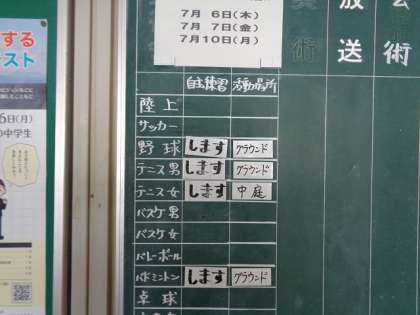 する
スト
6日(月)
の中学生
7月 6日(木)
7月 7日(金)
7月10日(月)
美術
放送
術
自主練習 活動場所
陸上
サッカー
野球 します グラウンド
テニス男 します グラウンド
テニス女 します 中庭
バスケ男
バスケ女
バレーボール
バドミントン します グラウンド
卓球